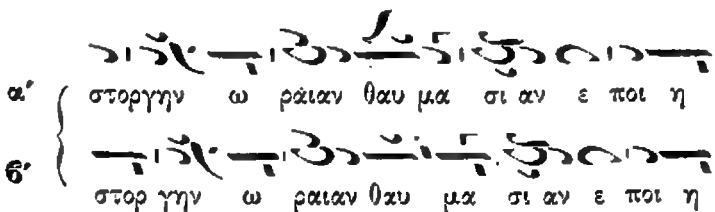 α′ στοργην ω ραιαν θαυ μα σι αν ε ποι η
β′ στορ γην ω ραιαν θαυ μα σι αν ε ποι η